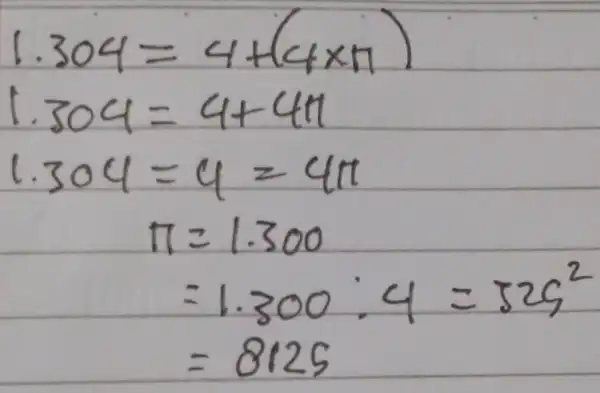 1.304 = 4+(4×n)
1.304 = 4+4n
1.304 = 4 = 4n
n = 1.300
= 1.300 : 4 = 325²
= 8125